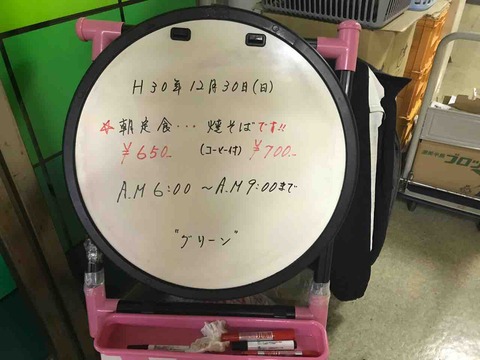 H30年12月30日(日)
☆朝定食・・・焼そばです!!
¥650- (コーヒー付) ¥700-
A.M 6:00 ～A.M 9:00まで
"グリーン"
ブロッ